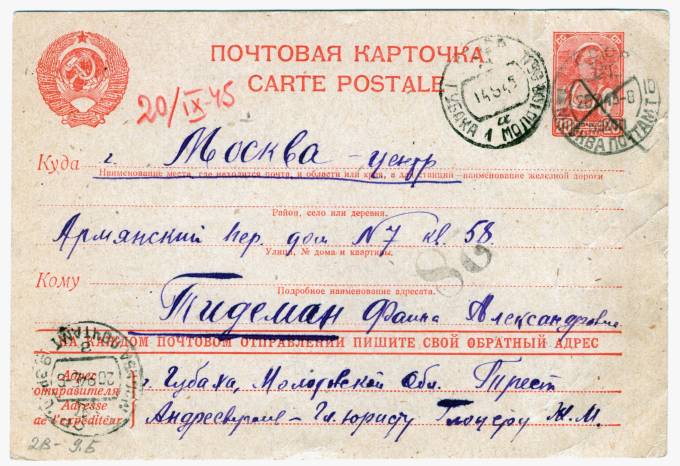 ПОЧТОВАЯ КАРТОЧКА
CARTE POSTALE
20/IX-45
ГУБАХА 1 МОЛОТОВ
14 9 45
МОСКВА ПОЧТАМТ
Куда г. Москва – центр
Наименование места, где находится почта, и области или края, а для станций – наименование железной дороги
Район, село или деревня.
Армянский пер. дом N 7 кв. 58.
Улица, № дома и квартиры.
Кому
Подробное наименование адресата.
Тидеман Фаина Александровна
НА КАЖДОМ ПОЧТОВОМ ОТПРАВЛЕНИИ ПИШИТЕ СВОЙ ОБРАТНЫЙ АДРЕС
Адрес отправителя г. Губаха, Молотовской Обл. Трест
Adresse de l'expéditeur Гл. юристу Глочеру М.
28
2В-9.Б